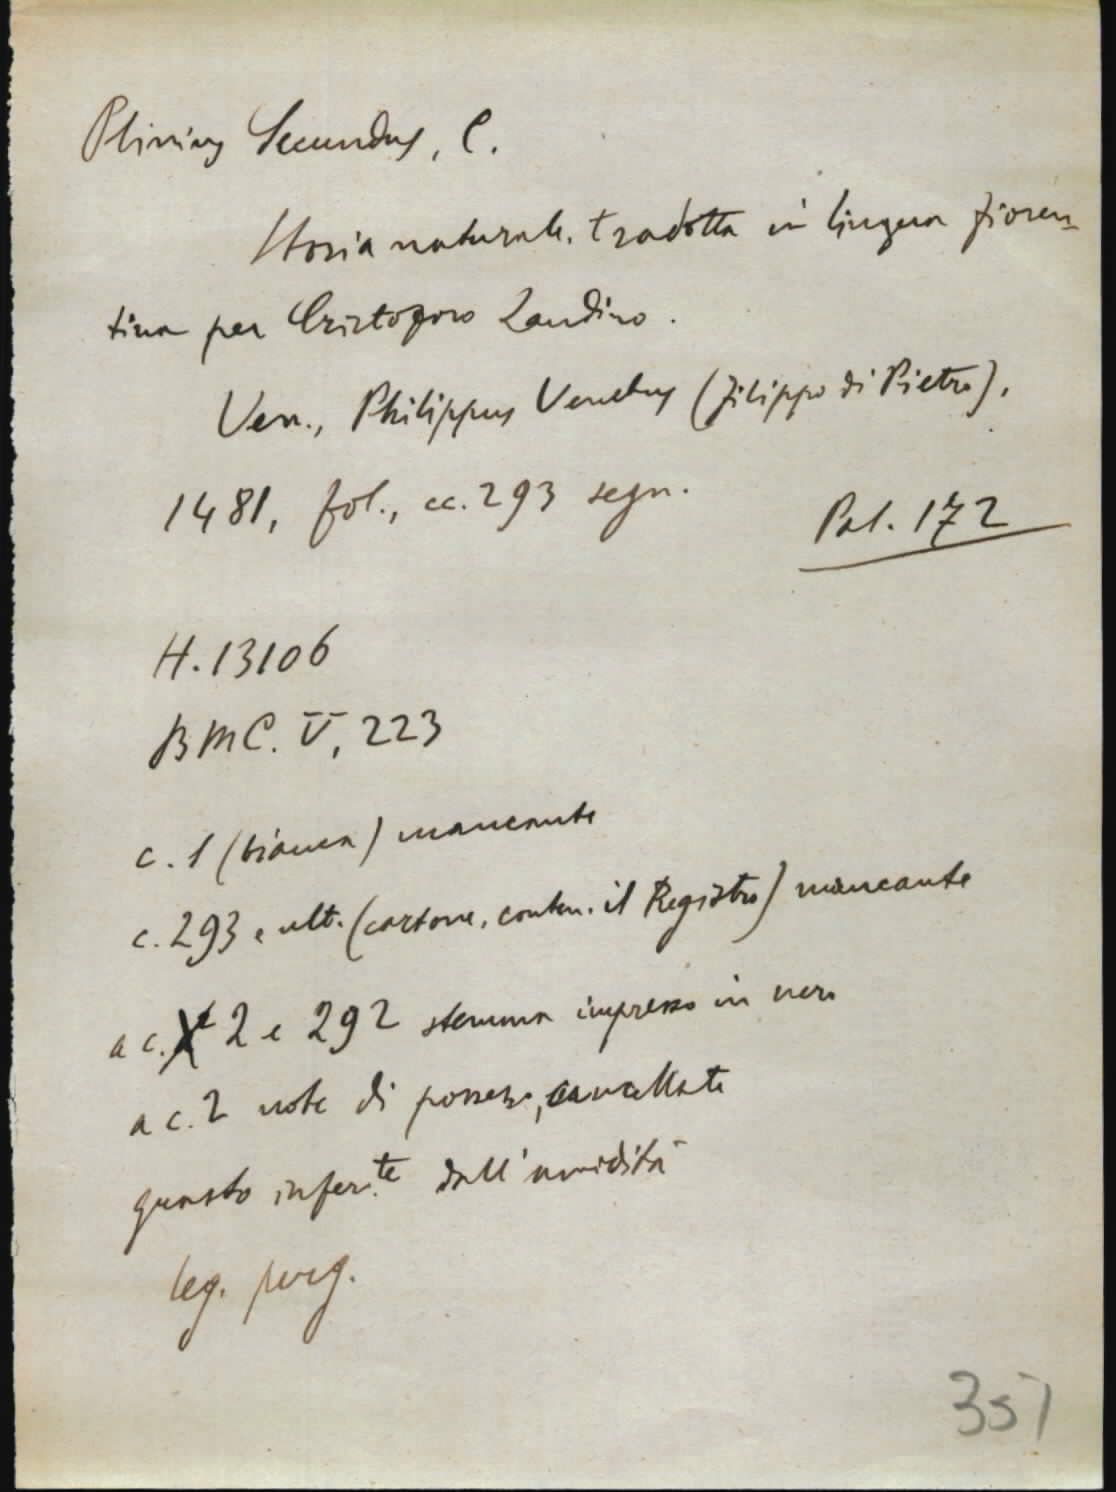 Plinius Secundus, C.
Storia naturale, tradotta in lingua fioren=
tina per Cristoforo Landino.
Ven., Philippus Venetus (Filippo di Pietro),
1481, fol., cc. 293 segn.
Pal. 172
H. 13106
BMC. V, 223
c. 1 (bianca) mancante
c. 293 e ult. (cartone, conten. il Registro) mancante
a c. 2 e 292 stemma impresso in nero
a c. 2 note di possesso, cancellate
guasto infer.te dall'umidità
leg. perg.
357